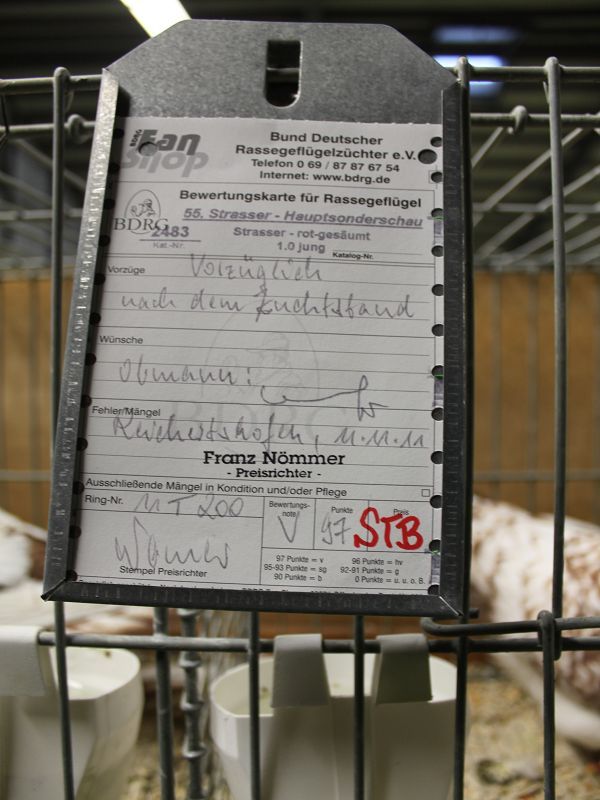 BDRG Fan Shop
Bund Deutscher
Rassegeflügelzüchter e.V.
Telefon 0 69 / 87 87 67 54
Internet: www.bdrg.de
Bewertungskarte für Rassegeflügel
55. Strasser - Hauptsonderschau
BDRG
2483 Strasser - rot-gesäumt
Kat.-Nr. 1.0 jung Katalog-Nr.
Vorzüge Vorzüglich
nach dem Zuchtstand
Wünsche
Obmann:
Fehler/Mängel
Reichertshofen, 11.11.11
Franz Nömmer
- Preisrichter -
Ausschließende Mängel in Kondition und/oder Pflege
Ring-Nr. 11 T 200
Bewertungs-
note V
Punkte 97
Preis STB
Stempel Preisrichter
97 Punkte = v 96 Punkte = hv
95-93 Punkte = sg 92-91 Punkte = g
90 Punkte = b 0 Punkte = u. u. o. B.